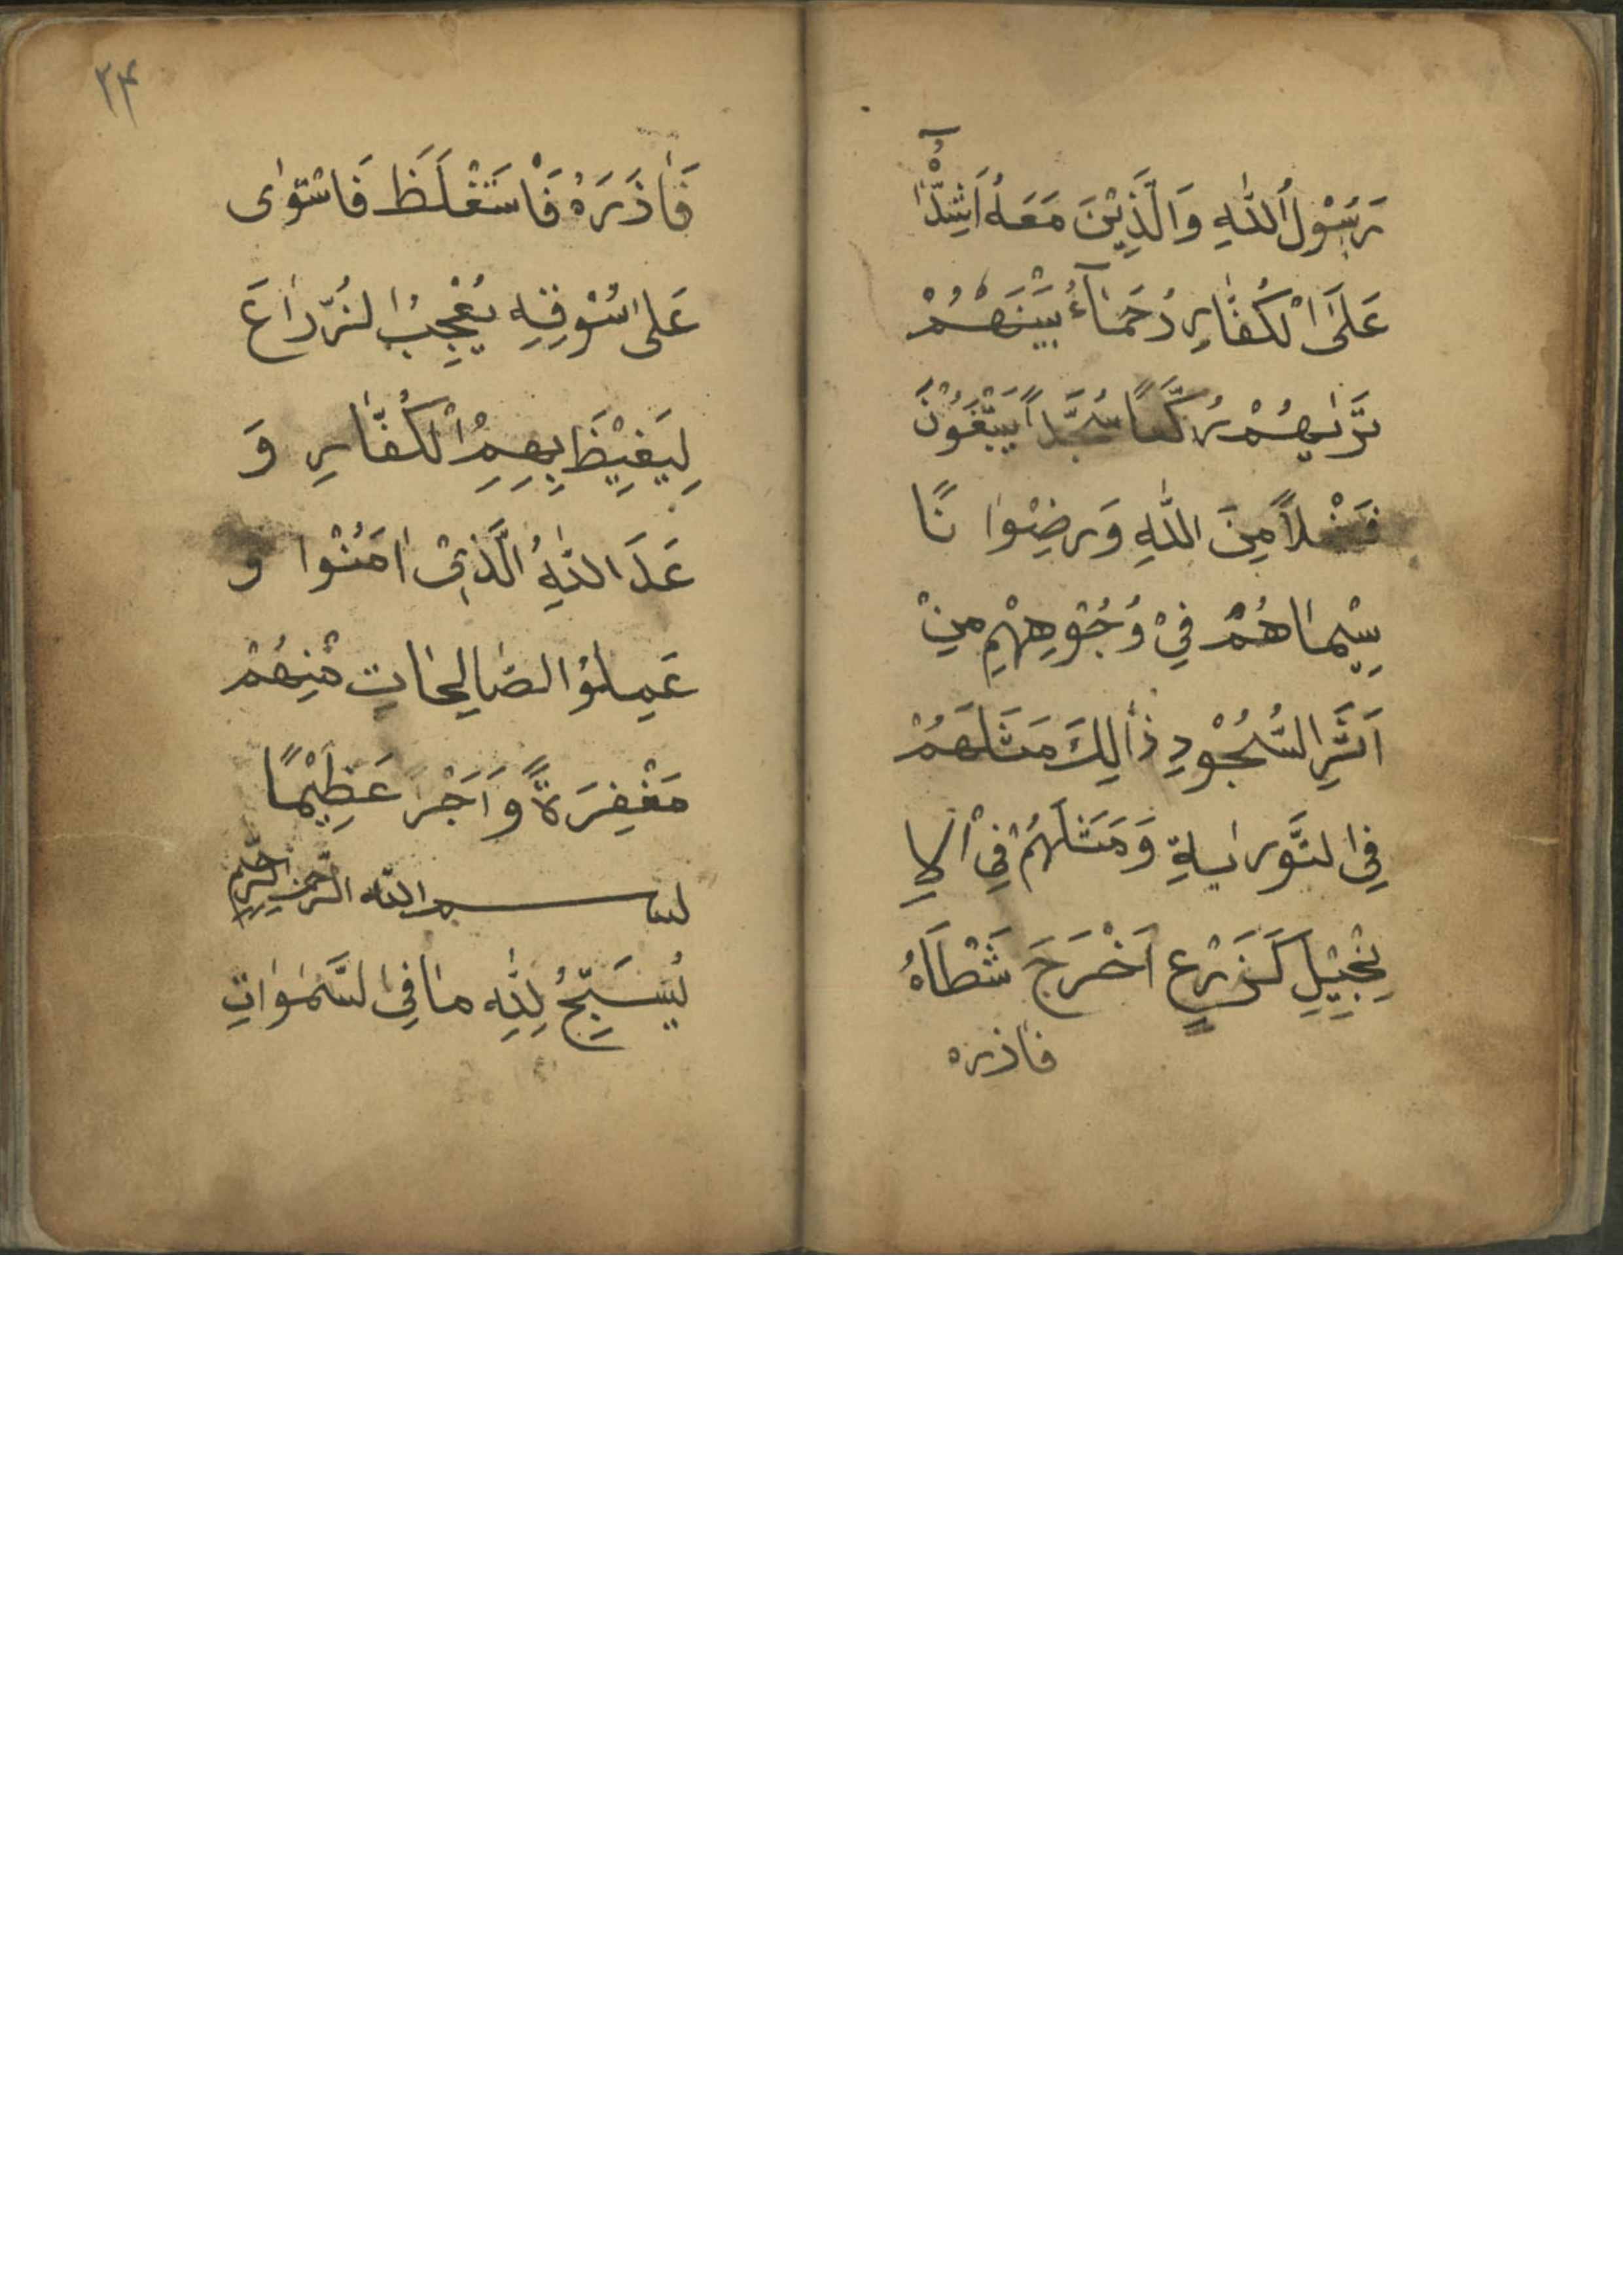 رَسُوْلُ اللّٰهِ وَالَّذِيْنَ مَعَهُ اَشِدّٰٓاءُ
عَلَى الْكُفّٰارِ رُحَمٰآءُ بَيْنَهُمْ
تَرٰیهُمْ رُكَّعاً سُجَّداً يَبْتَغُوْنَ
فَضْلاً مِنَ اللّٰهِ وَرِضْوٰا نًا
سِيْمٰاهُمْ فِيْ وُجُوْهِهِمْ مِنْ
اَثَرِ السُّجُوْدِ ذٰالِكَ مَثَلُهُمْ
فِى التَّوْرٰیةِ وَمَثَلُهُمْ فِى الْاِ
نْجِيْلِ كَزَرْعٍ اَخْرَجَ شَطْاَهُ
فاذره
۲۴
فَاٰذَرَهُ فَاْسَتَغْلَظَ فَاسْتَوٰى
عَلىٰ سُوْقِهِ يُعْجِبُ الزُّرّٰاعَ
لِيَغِيْظَ بِهِمُ الْكُفّٰارِ وَ
عَدَ اللّٰهُ الَّذِيْنَ اٰمَنُوْا و
عَمِلُوا الصّٰالِحٰاتِ مِنْهُمْ
مَغْفِرَةً وَاَجْرَ عَظِيْمًا
بسم الله الرحمن الرحيم
يُسَبِّحُ لِلّٰهِ مٰا فِى السَّمٰوٰاتِ